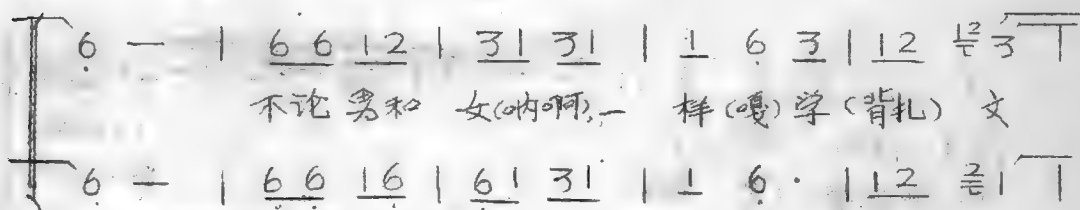 6 — | 6 6 1 2 | 3 1 3 1 | 1 6 3 | 1 2 12 3 |
不论 男和 女(呐啊),一 样(嘎)学(背扎) 文
6 — | 6 6 1 6 | 6 1 3 1 | 1 6 · | 1 2 2 1 |